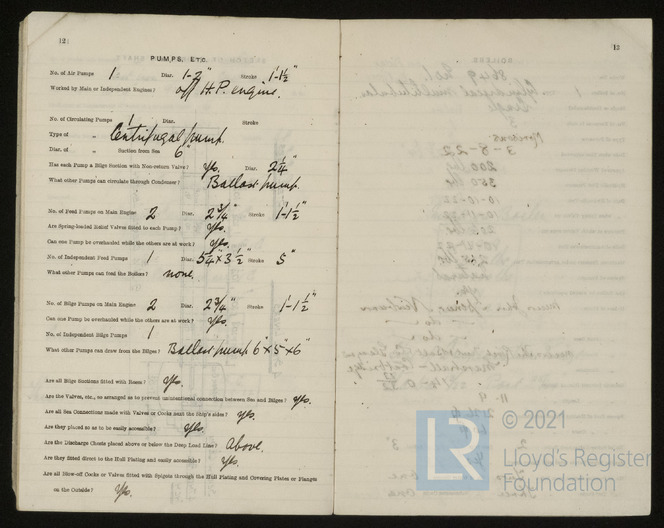 12
PUMPS, ETC.
No. of Air Pumps 1 Diar. 1-2" Stroke 1'-1½"
Worked by Main or Independent Engines? off H.P. engine.
No. of Circulating Pumps 1 Diar. Stroke
Type of „ Centrifugal pump.
Diar. of „ Suction from Sea 6"
Has each Pump a Bilge Suction with Non-return Valve? Yes. Diar. 2¼"
What other Pumps can circulate through Condenser? Ballast pump.
No. of Feed Pumps on Main Engine 2 Diar. 2¾" Stroke 1-1½"
Are Spring-loaded Relief Valves fitted to each Pump? Yes.
Can one Pump be overhauled while the others are at work? Yes.
No. of Independent Feed Pumps 1 Diar. 5¼" × 3½" Stroke 5"
What other Pumps can feed the Boilers? none.
No. of Bilge Pumps on Main Engine 2 Diar. 2¾" Stroke 1-1½"
Can one Pump be overhauled while the others are at work? Yes.
No. of Independent Bilge Pumps 1
What other Pumps can draw from the Bilges? Ballast pump 6" × 5" × 6"
Are all Bilge Suctions fitted with Roses? Yes.
Are the Valves, etc., so arranged as to prevent unintentional connection between Sea and Bilges? Yes.
Are all Sea Connections made with Valves or Cocks next the Ship's sides? Yes.
Are they placed so as to be easily accessible? Yes.
Are the Discharge Chests placed above or below the Deep Load Line? Above.
Are they fitted direct to the Hull Plating and easily accessible? Yes.
Are all Blow-off Cocks or Valves fitted with Spigots through the Hull Plating and Covering Plates or Flanges
on the Outside? Yes.
13
LR
© 2021
Lloyd's Register
Foundation